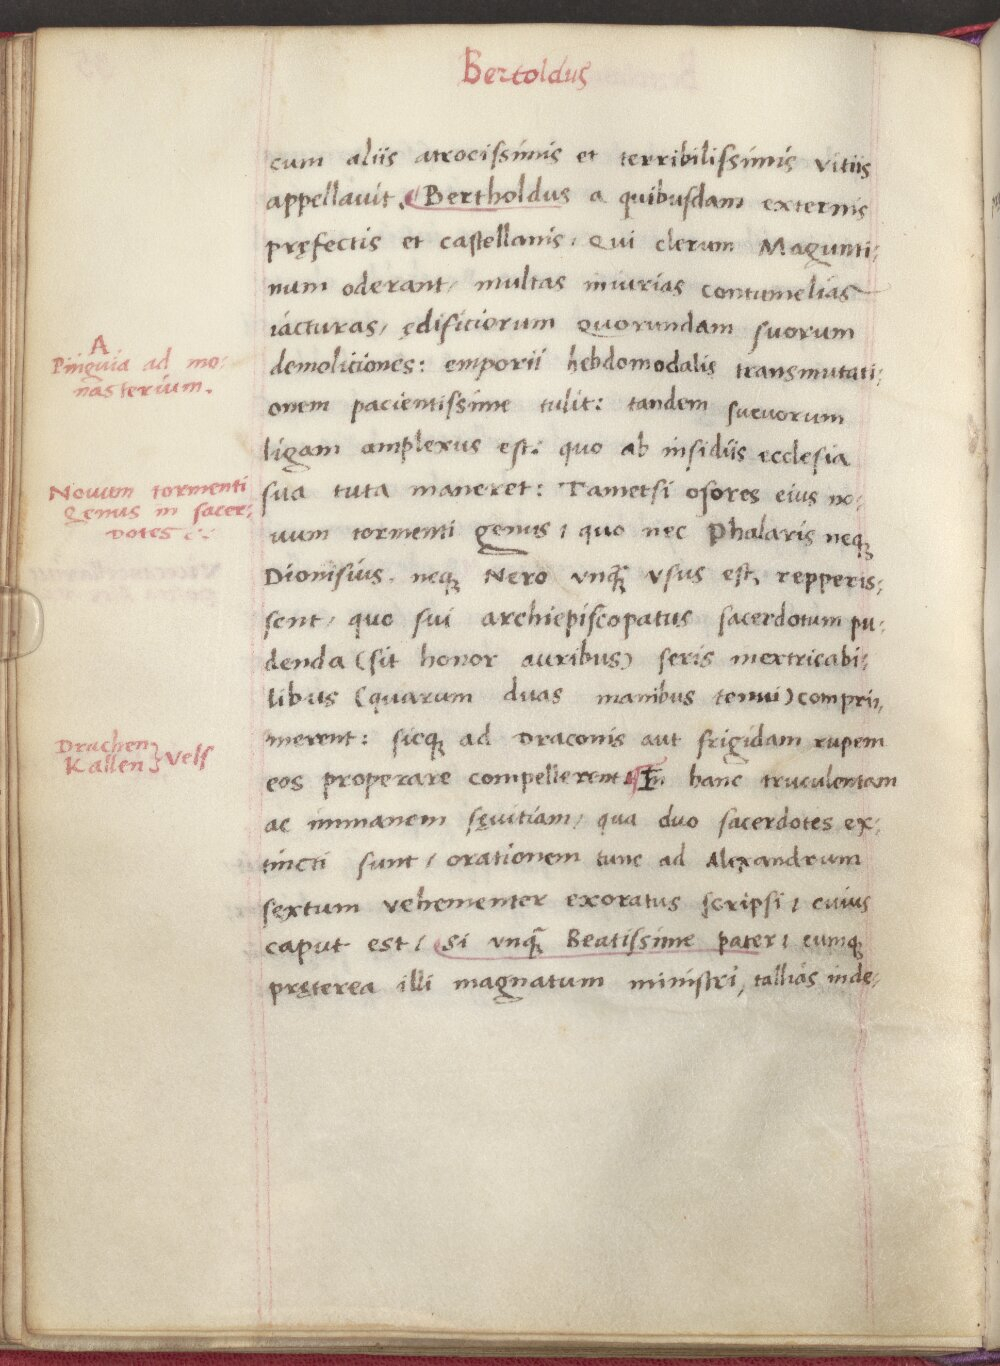 Bertoldus
cum aliis atrocissimis et terribilissimis vitiis
appellauit. Bertholdus a quibusdam externis
pręfectis et castellanis, Qui clerum Magunti:
num oderant, multas iniurias contumelias
iacturas, ędificiorum quorundam suorum
demoliciones: emporii hebdomodalis transmutati:
onem pacientissime tulit: tandem suevorum
ligam amplexus est: quo ab insidiis ecclesia
sua tuta maneret: Tametsi osores eius no:
uum tormenti genus, quo nec Phalaris neqꝫ
Dionisius, neqꝫ Nero vnqꝫ̃ vsus est, repperis:
sent, quo sui archiepiscopatus sacerdotum pu:
denda (sit honor auribus) seris inextricabi:
libus (quarum duas manibus tenui) compri:
merent: sicqꝫ ad Draconis aut frigidam rupem
eos properare compellerent. In hanc truculentam
ac immanem sęuitiam, qua duo sacerdotes ex:
tincti sunt, orationem tunc ad Alexandrum
sextum vehementer exoratus scripsi, cuius
caput est, Si vnqꝫ̃ Beatissime pater, eumqꝫ
pręterea illi magnatum ministri, tallias inde:
A
Pinguia ad mo:
nasterium.
Nouum tormenti
Genus in sacer:
dotes
Drachen
Kallen } vels